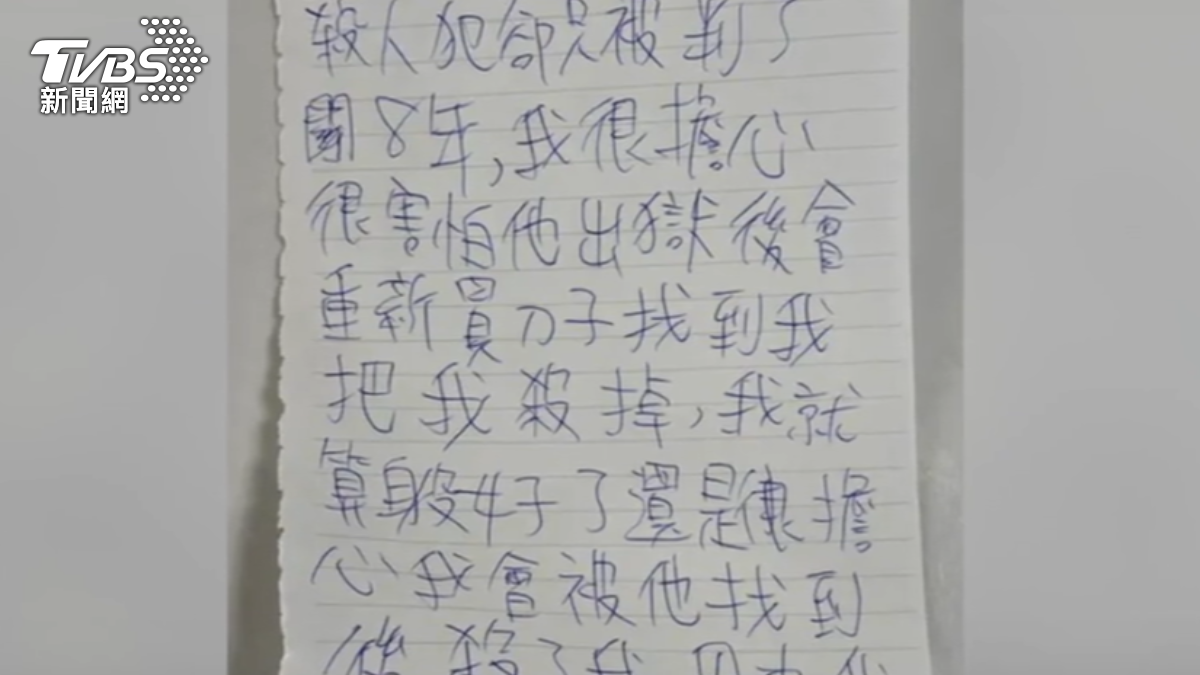 TVBS
新聞網
殺人犯卻只被判了
關8年,我很擔心
很害怕他出獄後會
重新買刀子找到我
把我殺掉,我就
算身段好了還是很擔
心我會被他找到
後殺了我